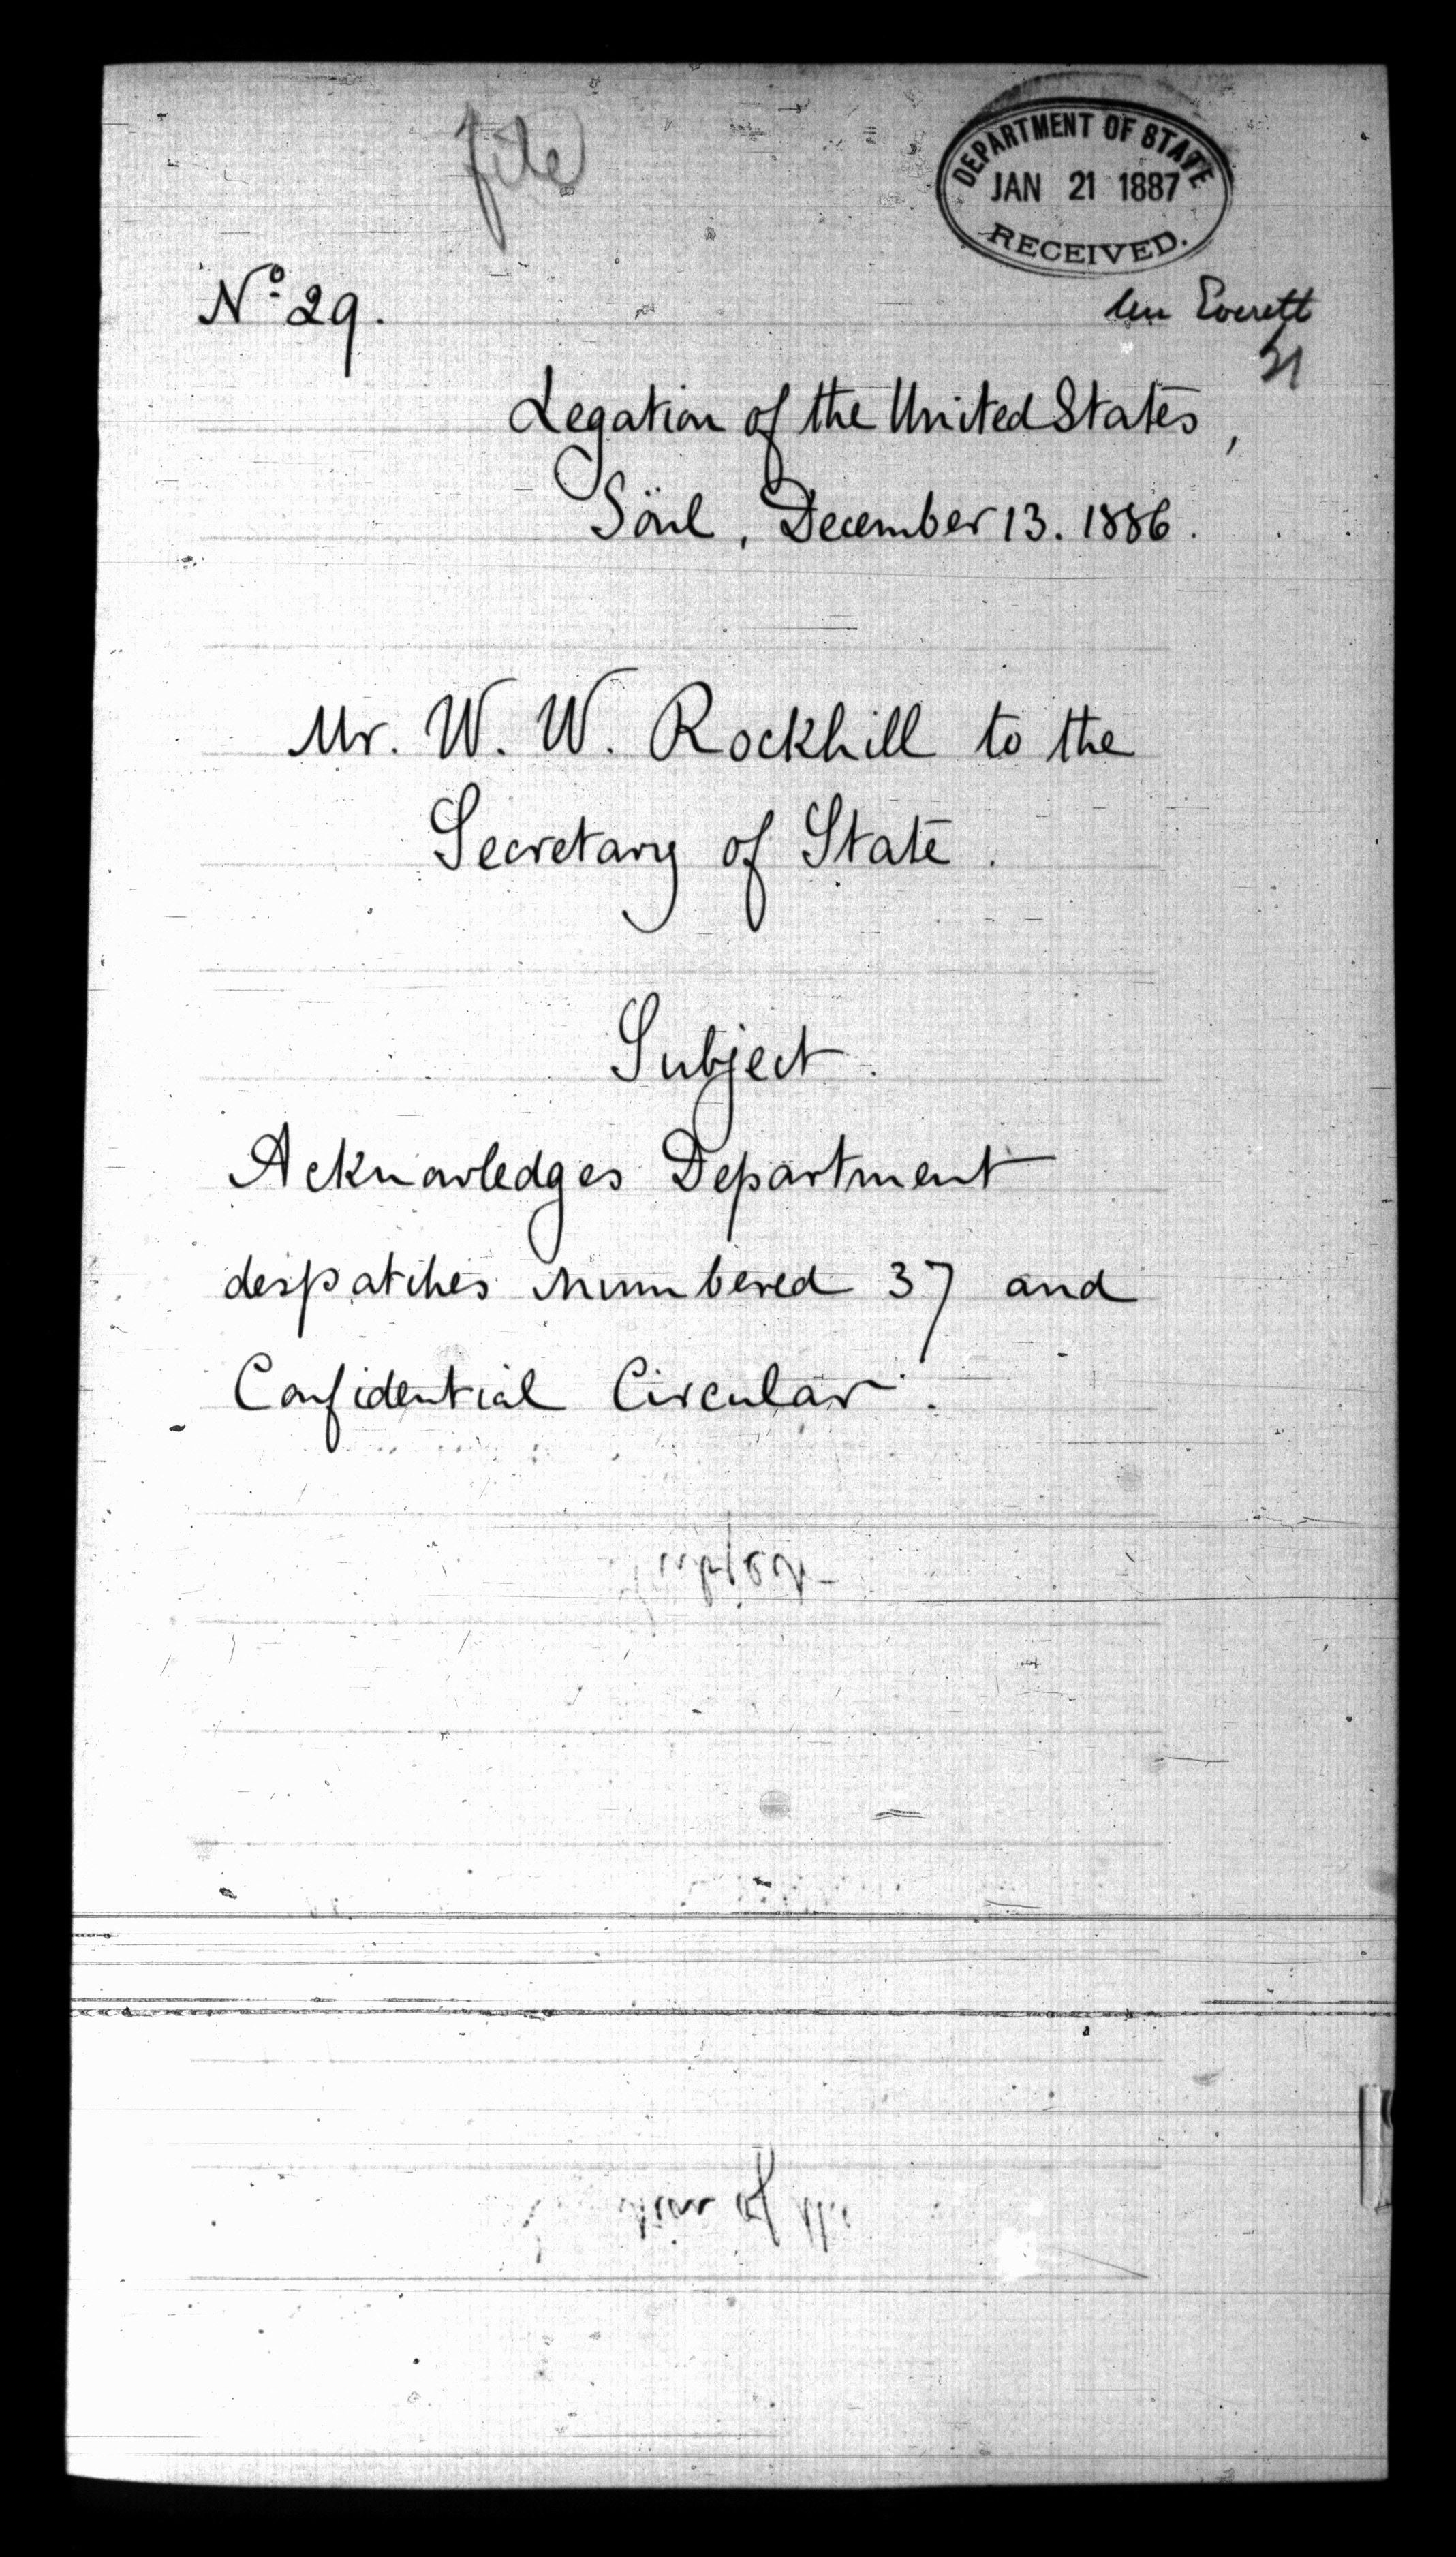 file
DEPARTMENT OF STATE
JAN 21 1887
RECEIVED.
Nº 29.
Everett
Legation of the United States,
Söul, December 13. 1886.
Mr. W. W. Rockhill to the
Secretary of State.
Subject.
Acknowledges Department
despatches numbered 37 and
Confidential Circular.
of the